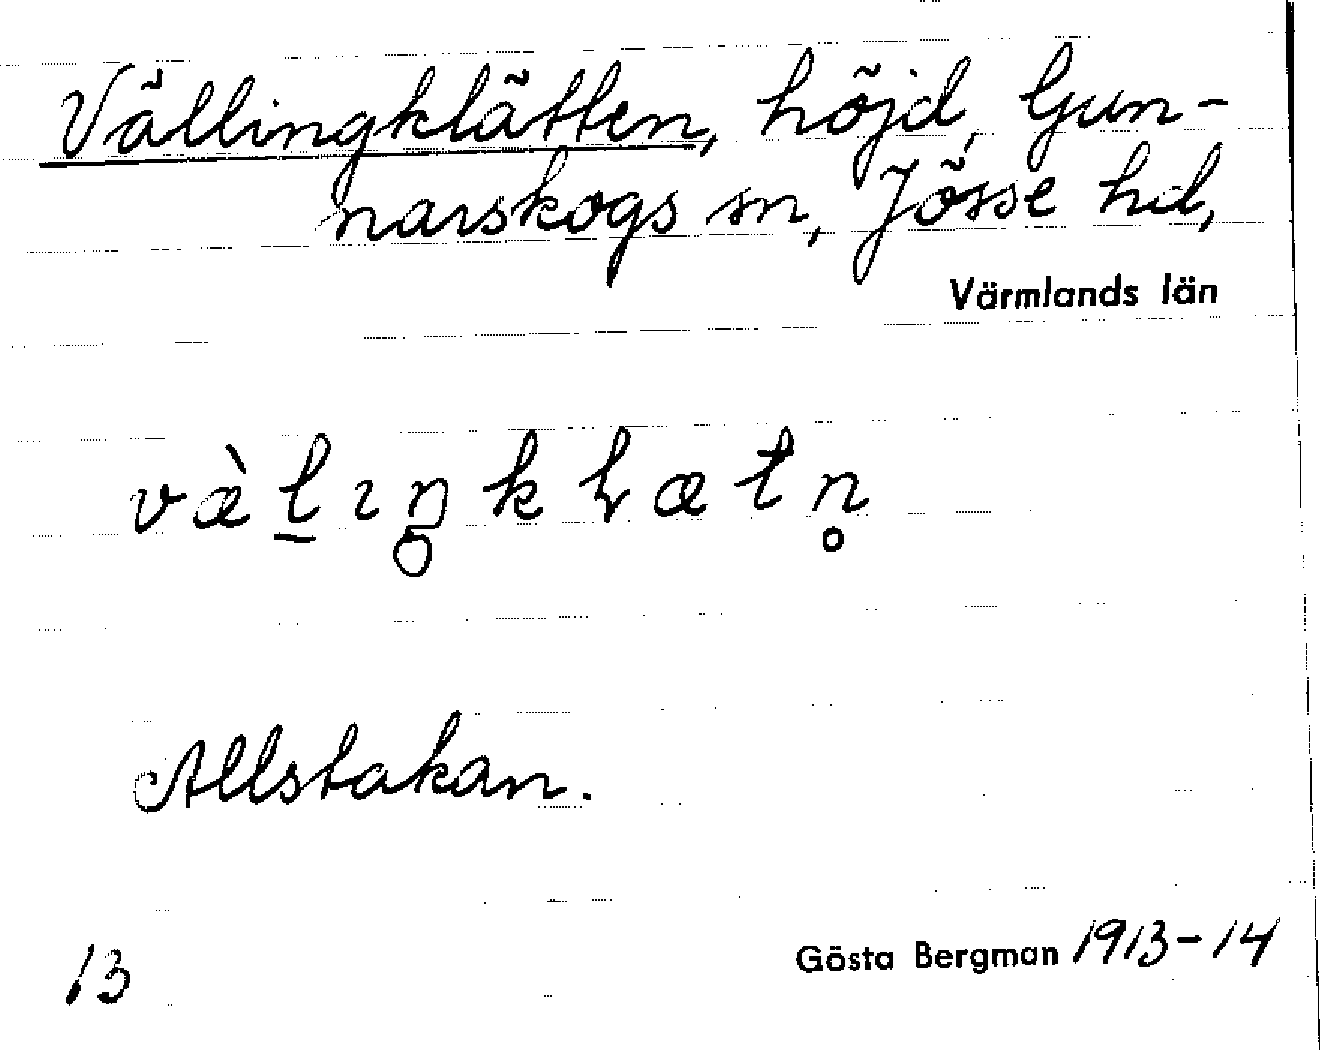 Vällingklätten, höjd, Gun-
narskogs sn, Jösse hd,
Värmlands län
væ̀l̠ıŋ̥kɽætn̥
Allstakan.
13
Gösta Bergman 1913-14